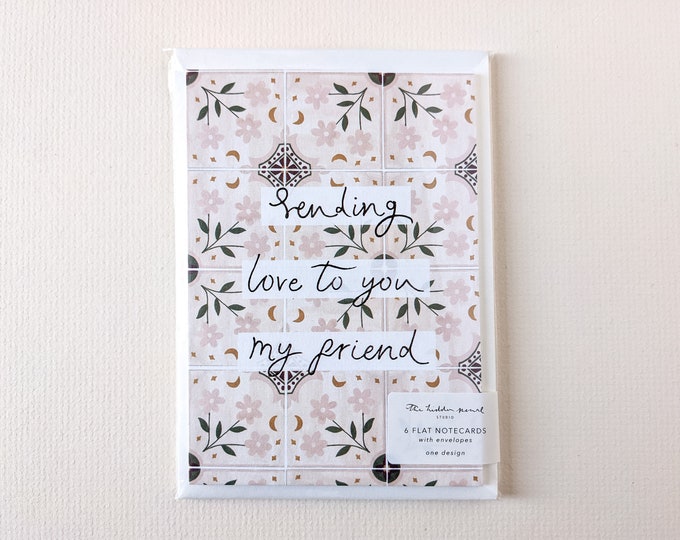 sending
love to you
my friend
the hidden pearl
STUDIO
6 FLAT NOTECARDS
with envelopes
one design